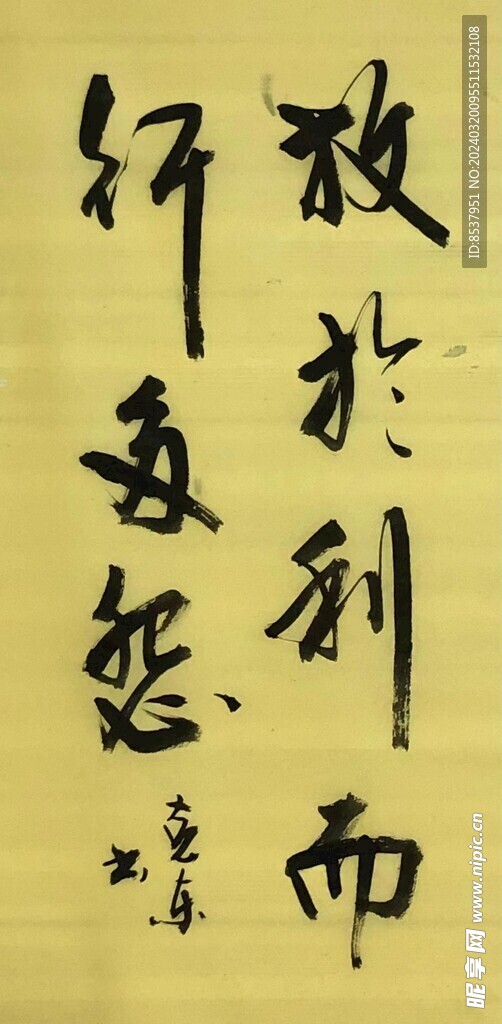 放於利而
行多怨
克东
书
ID:8537951 NO:20240320095511532108
昵享网 www.nipic.cn